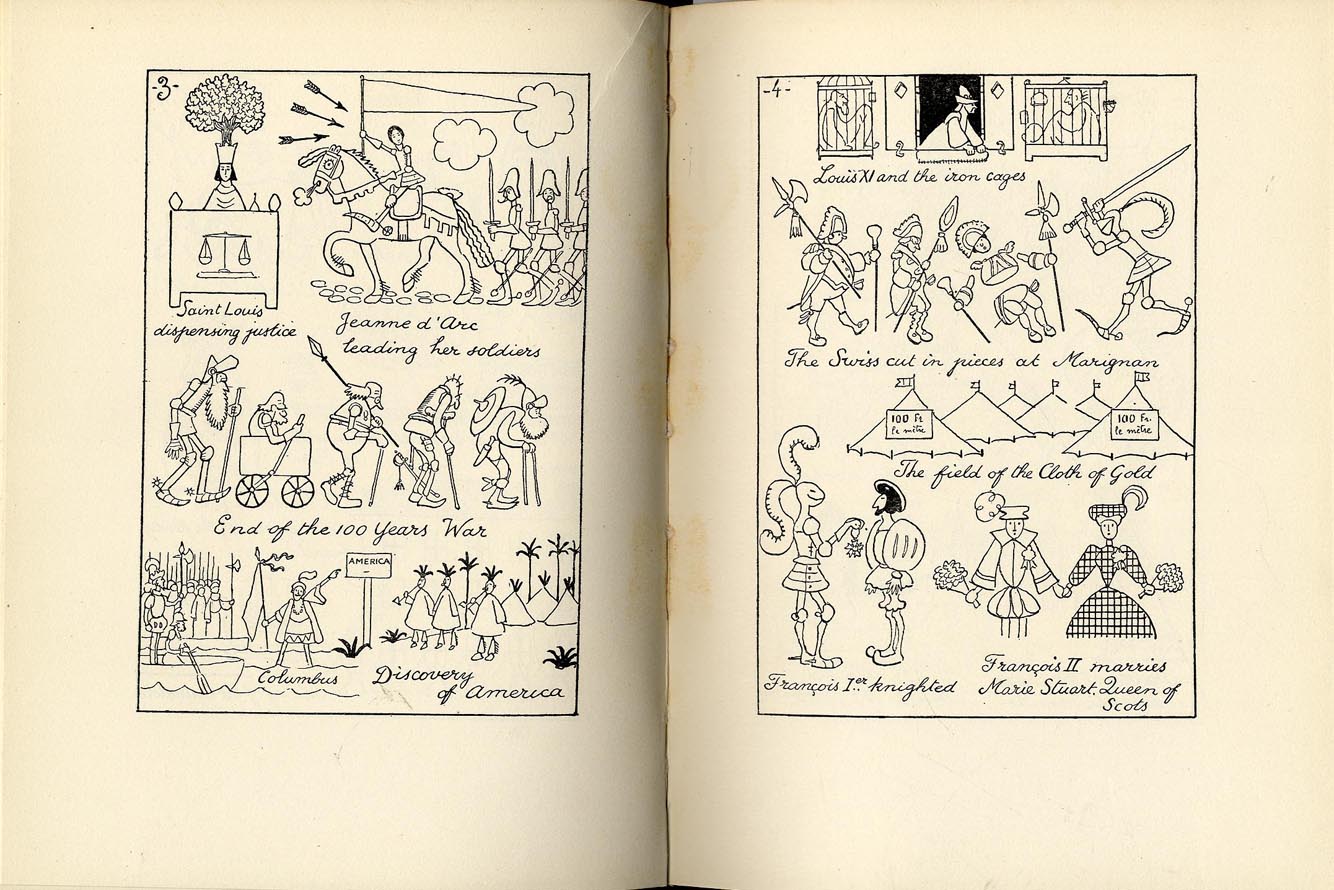 -3-
Saint Louis
dispensing justice
Jeanne d'Arc
leading her soldiers
End of the 100 Years War
AMERICA
Columbus
Discovery
of America
-4-
Louis XI and the iron cages
The Swiss cut in pieces at Marignan
100 Ft.
le mètre
100 Fr.
le mètre
The field of the Cloth of Gold
François I.er knighted
François II marries
Marie Stuart. Queen of
Scots